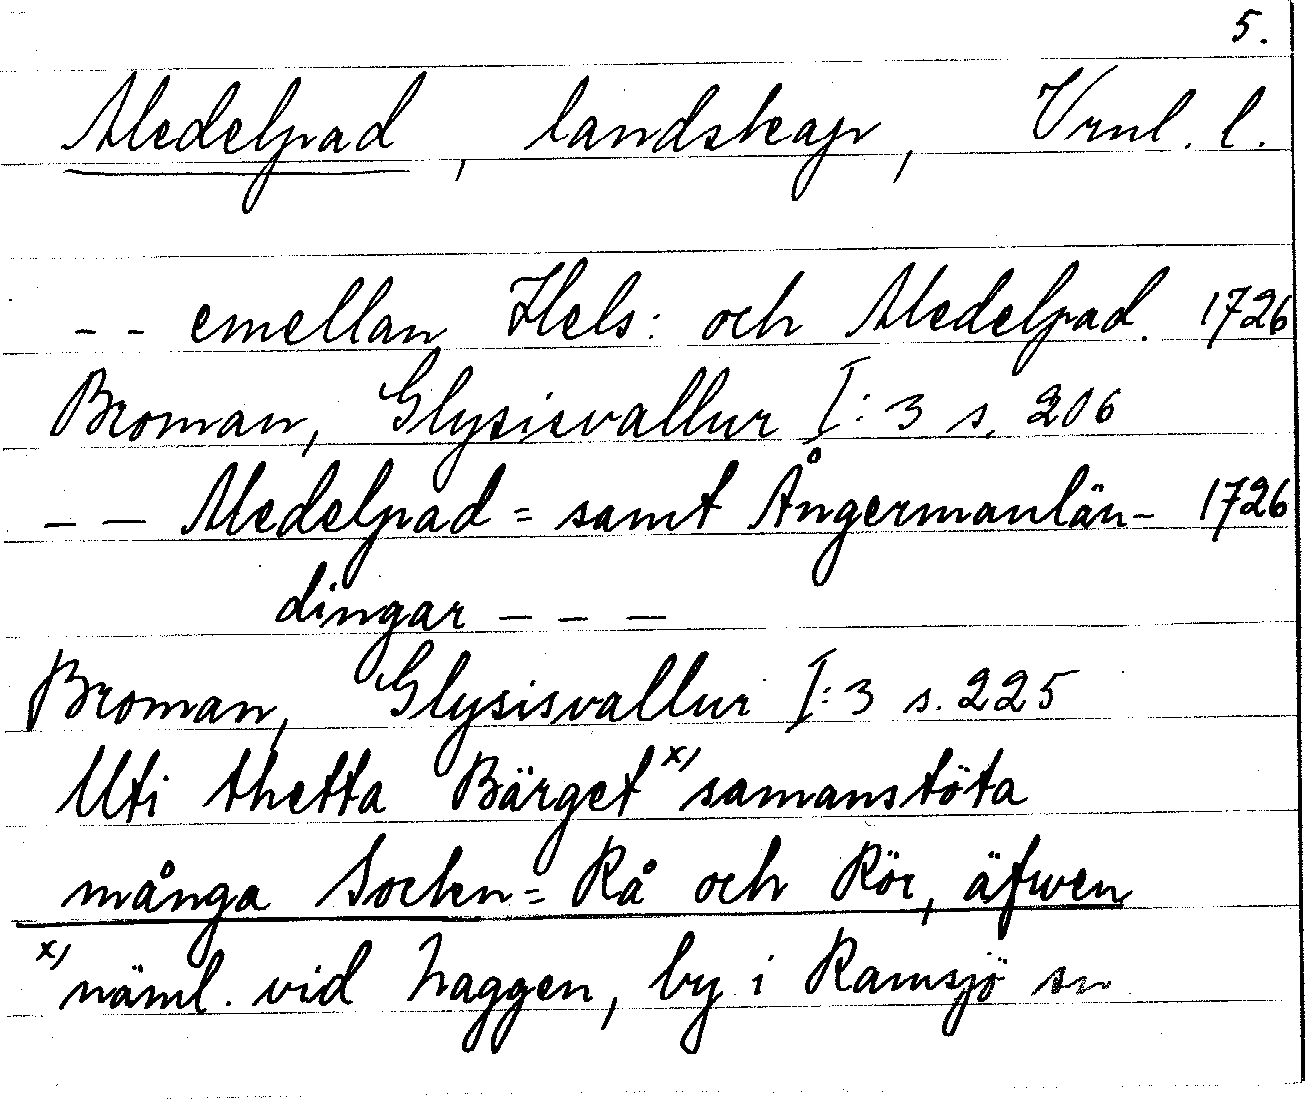 5.
Medelpad, landskap, Vrnl. l.
- - emellan Hels: och Medelpad. 1726
Broman, Glysisvallur I:3 s. 206
- - Medelpad = samt Ångermanlän- 1726
dingar - - -
Broman, Glysisvallur I:3 s. 225
Uti thetta Bärget x) samanstöta
många Socken = Rå och Rör, äfwen
x) näml. vid Haggen, by i Ramsjö sn